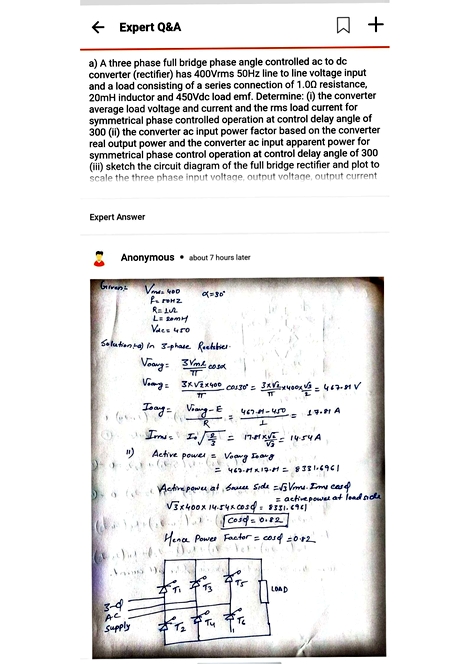 Expert Q&A
a) A three phase full bridge phase angle controlled ac to dc
converter (rectifier) has 400Vrms 50Hz line to line voltage input
and a load consisting of a series connection of 1.0Ω resistance,
20mH inductor and 450Vdc load emf. Determine: (i) the converter
average load voltage and current and the rms load current for
symmetrical phase controlled operation at control delay angle of
300 (ii) the converter ac input power factor based on the converter
real output power and the converter ac input apparent power for
symmetrical phase control operation at control delay angle of 300
(iii) sketch the circuit diagram of the full bridge rectifier and plot to
scale the three phase input voltage, output voltage, output current
Expert Answer
Anonymous • about 7 hours later
Given:- Vrms= 400 α=30°
f= 50HZ
R= 1Ω
L= 20mH
Vdc= 450
Solution:-a) In 3-phase Rectifier.
Voavg= 3Vml/π cosα
Voavg= 3×√2×400/π cos30° = 3×√2×400×√3/π 2 = 467.81 V
Ioavg= Voavg-E/R = 467.81-450/1 = 17.81 A
Irms= Io√2/3 = 17.81×√2/√3 = 14.54 A
ii) Active power = Voavg Ioavg
= 467.81×17.81 = 8331.6961
Active power at source side = √3 Vrms Irms cosϕ
= active power at load side
√3×400×14.54×cosϕ = 8331.6961
cosϕ = 0.82
Hence Power Factor = cosϕ = 0.82
T1 T3 T5 LOAD
3-ϕ
AC
Supply
T2 T4 T6